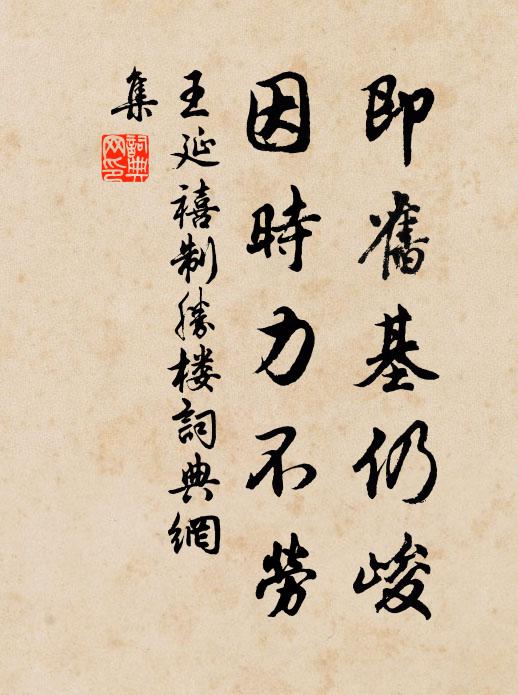 即舊基仍峻
因時力不勞
王延禧制勝樓詞典網
集
詞典
网印